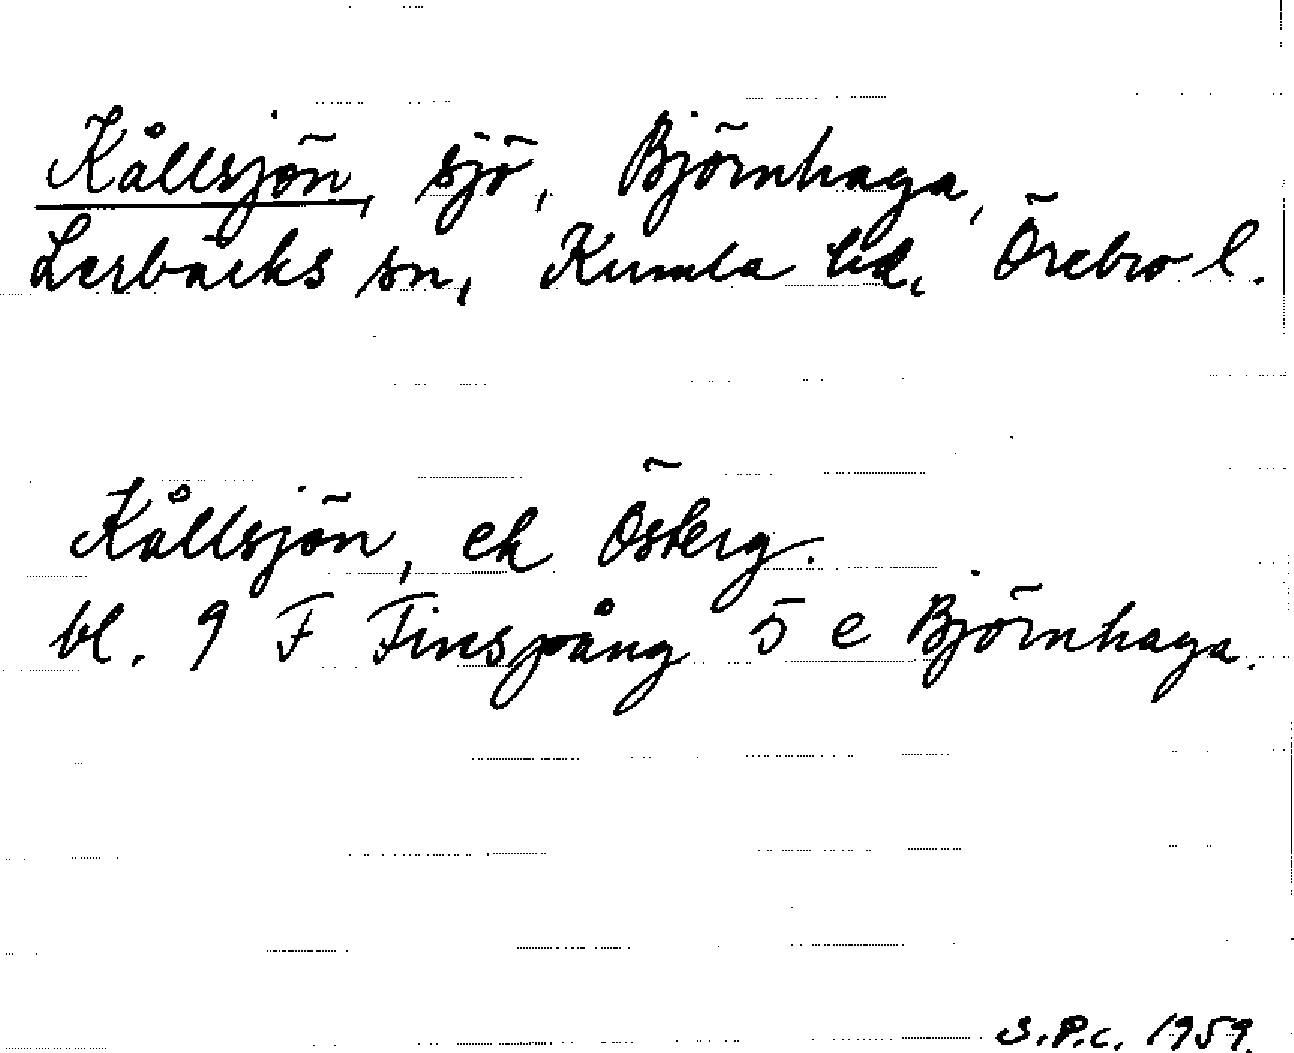 Kållsjön, sjö, Björnhaga,
Lerbäcks sn, Kumla hd, Örebro l.
Kållsjön, ek Österg.
bl. 9 F Finspång 5 e Björnhaga.
S.P.C. 1959.